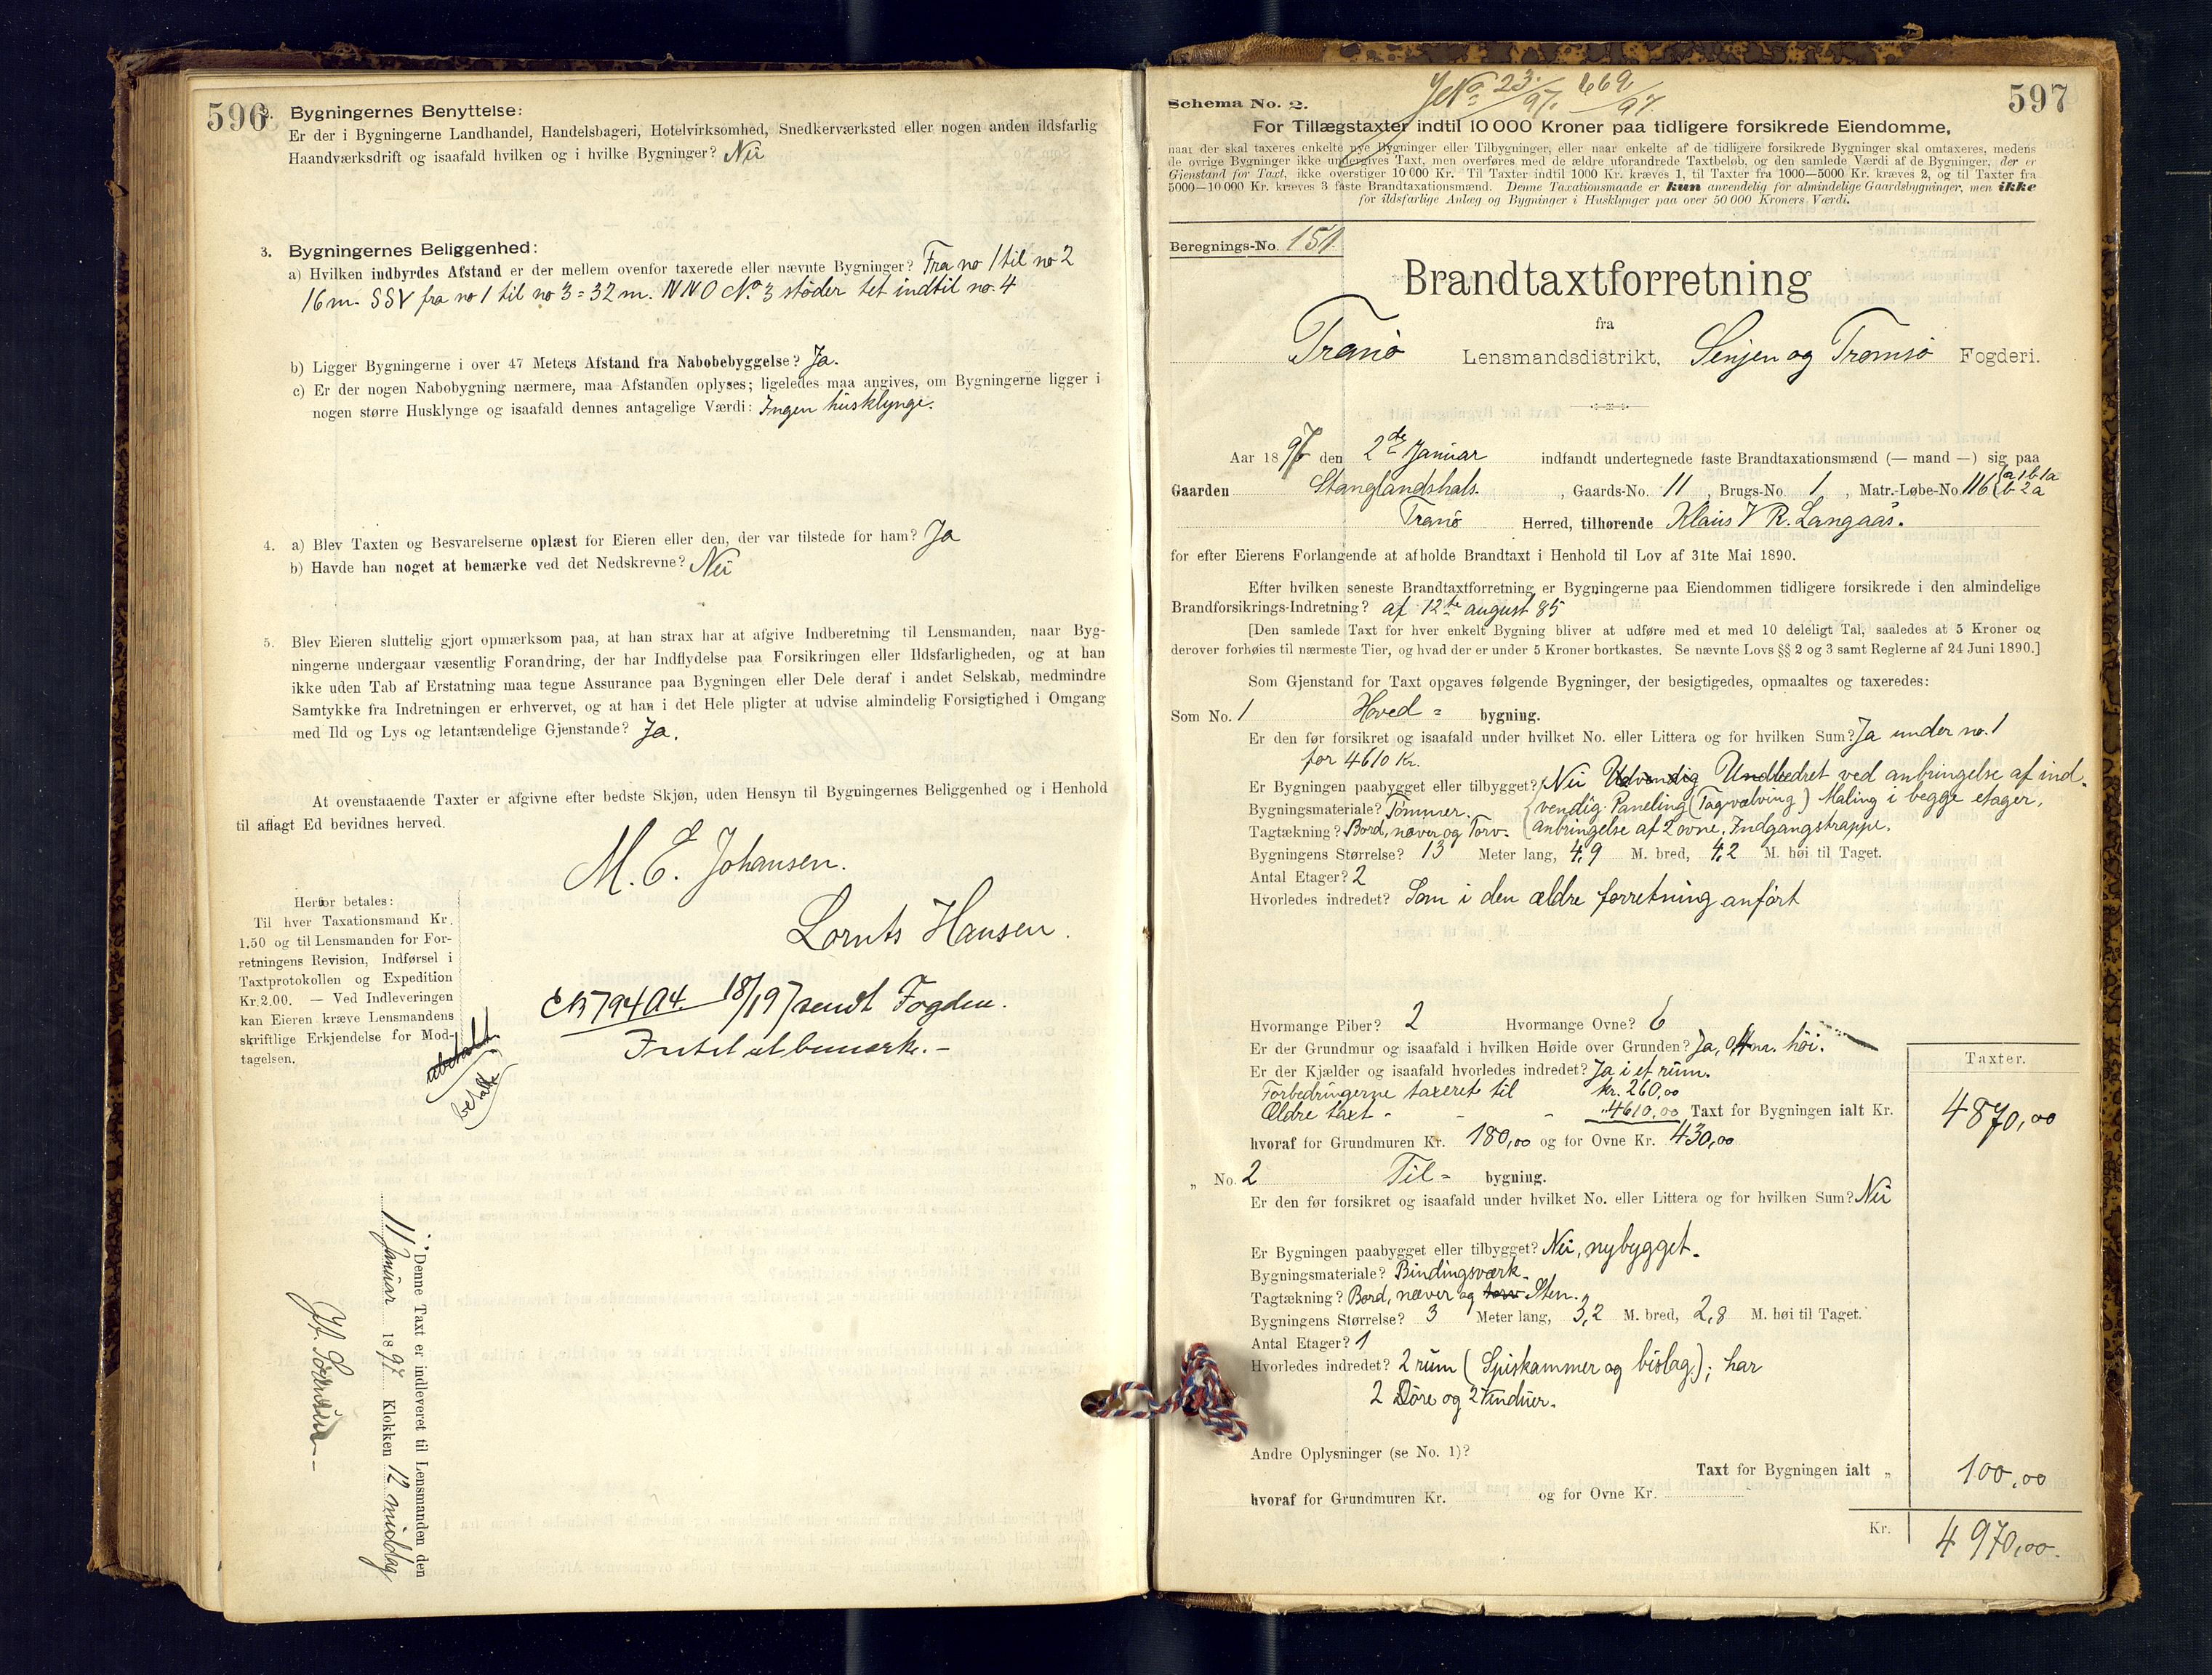 596
2. Bygningernes Benyttelse:
Er der i Bygningerne Landhandel, Handelsbageri, Hotelvirksomhed, Snedkerværksted eller nogen anden ildsfarlig
Haandværksdrift og isaafald hvilken og i hvilke Bygninger? Nei
3. Bygningernes Beliggenhed:
a) Hvilken indbyrdes Afstand er der mellem ovenfor taxerede eller nævnte Bygninger? Fra no 1 til no 2
16 m. SSV fra no 1 til no 3 = 32 m. NNO No. 3 støder tet indtil no. 4
b) Ligger Bygningerne i over 47 Meters Afstand fra Nabobebyggelse? Ja.
c) Er der nogen Nabobygning nærmere, maa Afstanden oplyses; ligeledes maa angives, om Bygningerne ligger i
nogen større Husklynge og isaafald dennes antagelige Værdi: Ingen husklynge.
4. a) Blev Taxten og Besvarelserne oplæst for Eieren eller den, der var tilstede for ham? Ja
b) Havde han noget at bemærke ved det Nedskrevne? Nei
5. Blev Eieren sluttelig gjort opmærksom paa, at han strax har at afgive Indberetning til Lensmanden, naar Byg-
ningerne undergaar væsentlig Forandring, der har Indflydelse paa Forsikringen eller Ildsfarligheden, og at han
ikke uden Tab af Erstatning maa tegne Assurance paa Bygningen eller Dele deraf i andet Selskab, medmindre
Samtykke fra Indretningen er erhvervet, og at han i det Hele pligter at udvise almindelig Forsigtighed i Omgang
med Ild og Lys og letantændelige Gjenstande? Ja.
At ovenstaaende Taxter er afgivne efter bedste Skjøn, uden Hensyn til Bygningernes Beliggenhed og i Henhold
til aflagt Ed bevidnes herved.
M. E. Johansen.
Lornts Hansen.
Herfor betales:
Til hver Taxationsmand Kr.
1.50 og til Lensmanden for For-
retningens Revision, Indførsel i
Taxtprotokollen og Expedition
Kr. 2.00. — Ved Indleveringen
kan Eieren kræve Lensmandens
skriftlige Erkjendelse for Mod-
tagelsen.
ubetalt
betalt
18/1 97 sendt Fogden.
Intet at bemærke. –
Denne Taxt er indleveret til Lensmanden den
11 Januar 1897 Klokken 12 middag
597
Schema No. 2.
No 23/97. 669/97
For Tillægstaxter indtil 10 000 Kroner paa tidligere forsikrede Eiendomme,
naar der skal taxeres enkelte nye Bygninger eller Tilbygninger, eller naar enkelte af de tidligere forsikrede Bygninger skal omtaxeres, medens
de øvrige Bygninger ikke undergives Taxt, men overføres med de ældre uforandrede Taxtbeløb, og den samlede Værdi af de Bygninger, der er
Gjenstand for Taxt, ikke overstiger 10 000 Kr. Til Taxter indtil 1000 Kr. kræves 1, til Taxter fra 1000—5000 Kr. kræves 2, og til Taxter fra
5000—10 000 Kr. kræves 3 faste Brandtaxationsmænd. Denne Taxationsmaade er kun anvendelig for almindelige Gaardsbygninger, men ikke
for ildsfarlige Anlæg og Bygninger i Husklynger paa over 50 000 Kroners Værdi.
Beregnings-No. 151.
Brandtaxtforretning
fra
Tranø Lensmandsdistrikt, Senjen og Tromsø Fogderi.
Aar 1897 den 2de Januar indfandt undertegnede faste Brandtaxationsmænd (— mand —) sig paa
Gaarden Stanglandshals, Gaards-No. 11, Brugs-No. 1, Matr.-Løbe-No. 116 {a 1 b 1a
b 2 a
Tranø Herred, tilhørende Klaus V R. Langaas.
for efter Eierens Forlangende at afholde Brandtaxt i Henhold til Lov af 31te Mai 1890.
Efter hvilken seneste Brandtaxtforretning er Bygningerne paa Eiendommen tidligere forsikrede i den almindelige
Brandforsikrings-Indretning? af 12te august 85
[Den samlede Taxt for hver enkelt Bygning bliver at udføre med et med 10 deleligt Tal, saaledes at 5 Kroner og
derover forhøies til nærmeste Tier, og hvad der er under 5 Kroner bortkastes. Se nævnte Lovs §§ 2 og 3 samt Reglerne af 24 Juni 1890.]
Som Gjenstand for Taxt opgaves følgende Bygninger, der besigtigedes, opmaaltes og taxeredes:
Som No. 1 Hoved = bygning.
Er den før forsikret og isaafald under hvilket No. eller Littera og for hvilken Sum? Ja under no. 1
for 4610 Kr.
Er Bygningen paabygget eller tilbygget? Nei Udvendig Undbedret ved anbringelse af ind-
Bygningsmateriale? Tømmer. {vendig Paneling (Tagvælving) Maling i begge etager,
Tagtækning? Bord, næver og Torv. {anbringelse af 2 ovne, Indgangstrappe.
Bygningens Størrelse? 13 Meter lang, 4,9 M. bred, 4,2 M. høi til Taget.
Antal Etager? 2
Hvorledes indredet? Som i den ældre forretning anført
Hvormange Piber? 2 Hvormange Ovne? 6
Er der Grundmur og isaafald i hvilken Høide over Grunden? Ja, høi.
Er der Kjælder og isaafald hvorledes indredet? Ja i et rum.
Taxter.
Forbedringerne taxeret til kr. 260,00
Ældre taxt - - - „ 4610,00 Taxt for Bygningen ialt Kr. 4870,00
hvoraf for Grundmuren Kr. 180,00 og for Ovne Kr. 430,00
„ No. 2 Til = bygning.
Er den før forsikret og isaafald under hvilket No. eller Littera og for hvilken Sum? Nei
Er Bygningen paabygget eller tilbygget? Nei, nybygget.
Bygningsmateriale? Bindingsværk.
Tagtækning? Bord, næver og torv Sten.
Bygningens Størrelse? 3 Meter lang, 3,2 M. bred, 2,8 M. høi til Taget.
Antal Etager? 1
Hvorledes indredet? 2 rum (Spiskammer og bislag); har
2 Døre og 2 Vinduer.
Andre Oplysninger (se No. 1)?
Taxt for Bygningen ialt „ 100,00
hvoraf for Grundmuren Kr. og for Ovne Kr.
Kr. 4970,00.